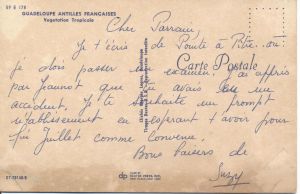 GUADELOUPE ANTILLES FRANÇAISES
Vegetation Tropicale
Cher Parrain,
Je t'écris de Pointe à Pitre où
je dois passer un examen. J'ai appris
par Jeannot que tu avais eu un
accident. Je te souhaite un prompt
rétablissement en espérant t'avoir pour
fin Juillet comme convenu.
Bons baisers de
Suzy
Carte Postale
dp